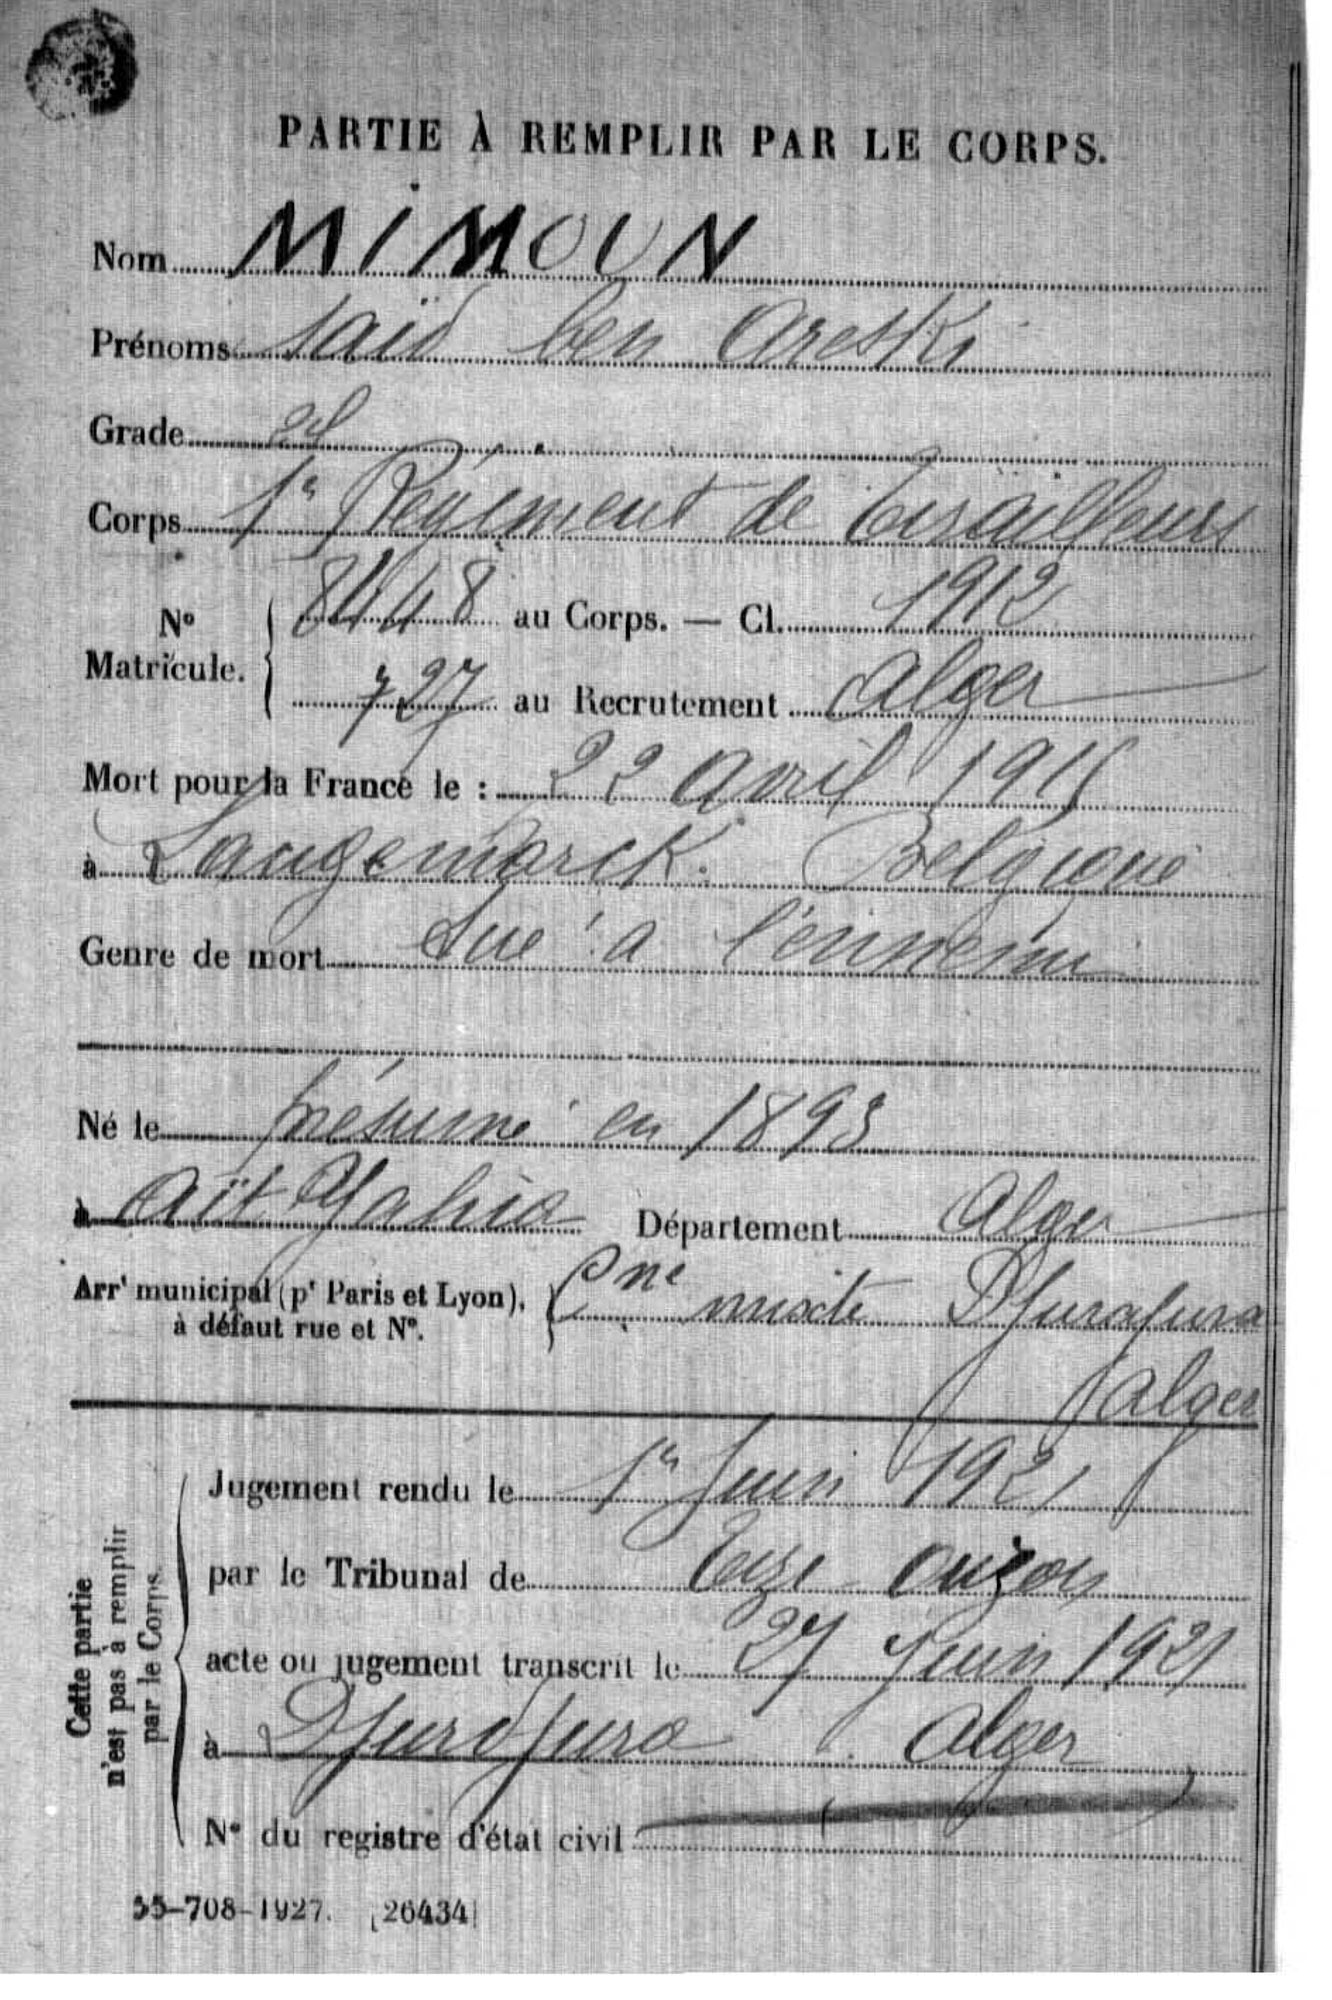 PARTIE À REMPLIR PAR LE CORPS.
Nom MiMOUN
Prénoms Saïd ben Areski
Grade 2e
Corps 1er Régiment de Tirailleurs
No Matricule. 8448 au Corps. — Cl. 1912
727 au Recrutement Alger
Mort pour la France le : 22 Avril 1915
à Langemarck. Belgique
Genre de mort Tué à l'ennemi
Né le présumé en 1893
à Aït Yahia Département Alger
Arrt municipal (pr Paris et Lyon), à défaut rue et No. Cne mixte Djurdjura
Alger
Cette partie n'est pas à remplir par le Corps.
Jugement rendu le 1er Juin 1921
par le Tribunal de Tizi-Ouzou
acte ou jugement transcrit le 27 Juin 1921
à Djurdjura Alger
No du registre d'état civil
35-708-1927. [26434]